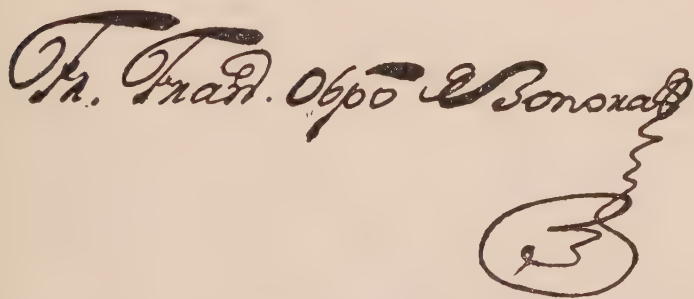 Fr. Franco. Obpo de Sonora